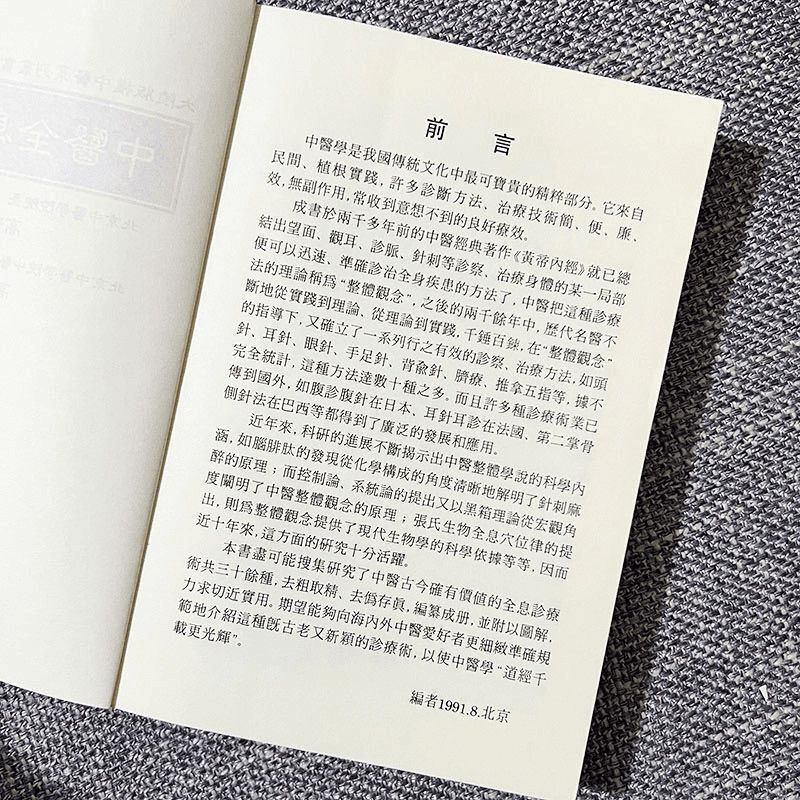 前言
中醫學是我國傳統文化中最可寶貴的精粹部分。它來自
民間、植根實踐，許多診斷方法、治療技術簡、便、廉、
效，無副作用，常收到意想不到的良好療效。
成書於兩千多年前的中醫經典著作《黃帝內經》就已總
結出望面、觀耳、診脈、針刺等診察、治療身體的某一局部
便可以迅速、準確診治全身疾患的方法了，中醫把這種診療
法的理論稱爲“整體觀念”，之後的兩千餘年中，歷代名醫不
斷地從實踐到理論、從理論到實踐，千錘百鍊，在“整體觀念”
的指導下，又確立了一系列行之有效的診察、治療方法，如頭
針、耳針、眼針、手足針、背兪針、臍療、推拿五指等，據不
完全統計，這種方法達數十種之多。而且許多種診療術業已
傳到國外，如腹診腹針在日本、耳針耳診在法國、第二掌骨
側針法在巴西等都得到了廣泛的發展和應用。
近年來，科研的進展不斷揭示出中醫整體學說的科學內
涵，如腦腓肽的發現從化學構成的角度清晰地解明了針刺麻
醉的原理；而控制論、系統論的提出又以黑箱理論從宏觀角
度闡明了中醫整體觀念的原理；張氏生物全息穴位律的提
出，則爲整體觀念提供了現代生物學的科學依據等等，因而
近十年來，這方面的研究十分活躍。
本書盡可能搜集研究了中醫古今確有價値的全息診療
術共三十餘種，去粗取精、去僞存眞，編纂成册，並附以圖解，
力求切近實用。期望能夠向海內外中醫愛好者更細緻準確規
範地介紹這種旣古老又新穎的診療術，以使中醫學“道經千
載更光輝”。
編者1991.8.北京
中醫全息